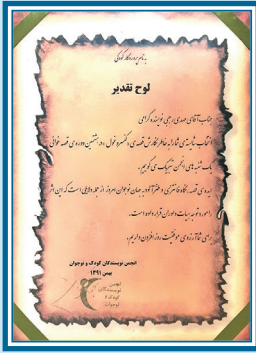 به نام پروردگار کودکی
لوح تقدیر
جناب آقای مهدی رجبی نویسنده گرامی
انتخاب شایسته‌ی شما را به خاطر نگارش قصه‌ی کنسرو غول در هشتمین دوره‌ی قصه خوانی
یک شنبه های انجمن تبریک می گوییم.
ایده‌ی قصه، نگاه فانتزی و طنزآلود به جهان نوجوان امروز از جمله دلایلی است که این اثر
را مورد توجه داوران قرار داده است.
برای شما آرزوی موفقیت روزافزون داریم.
انجمن نویسندگان کودک و نوجوان
بهمن ۱۳۹۱
انجمن
نویسندگان
کودک و
نوجوان